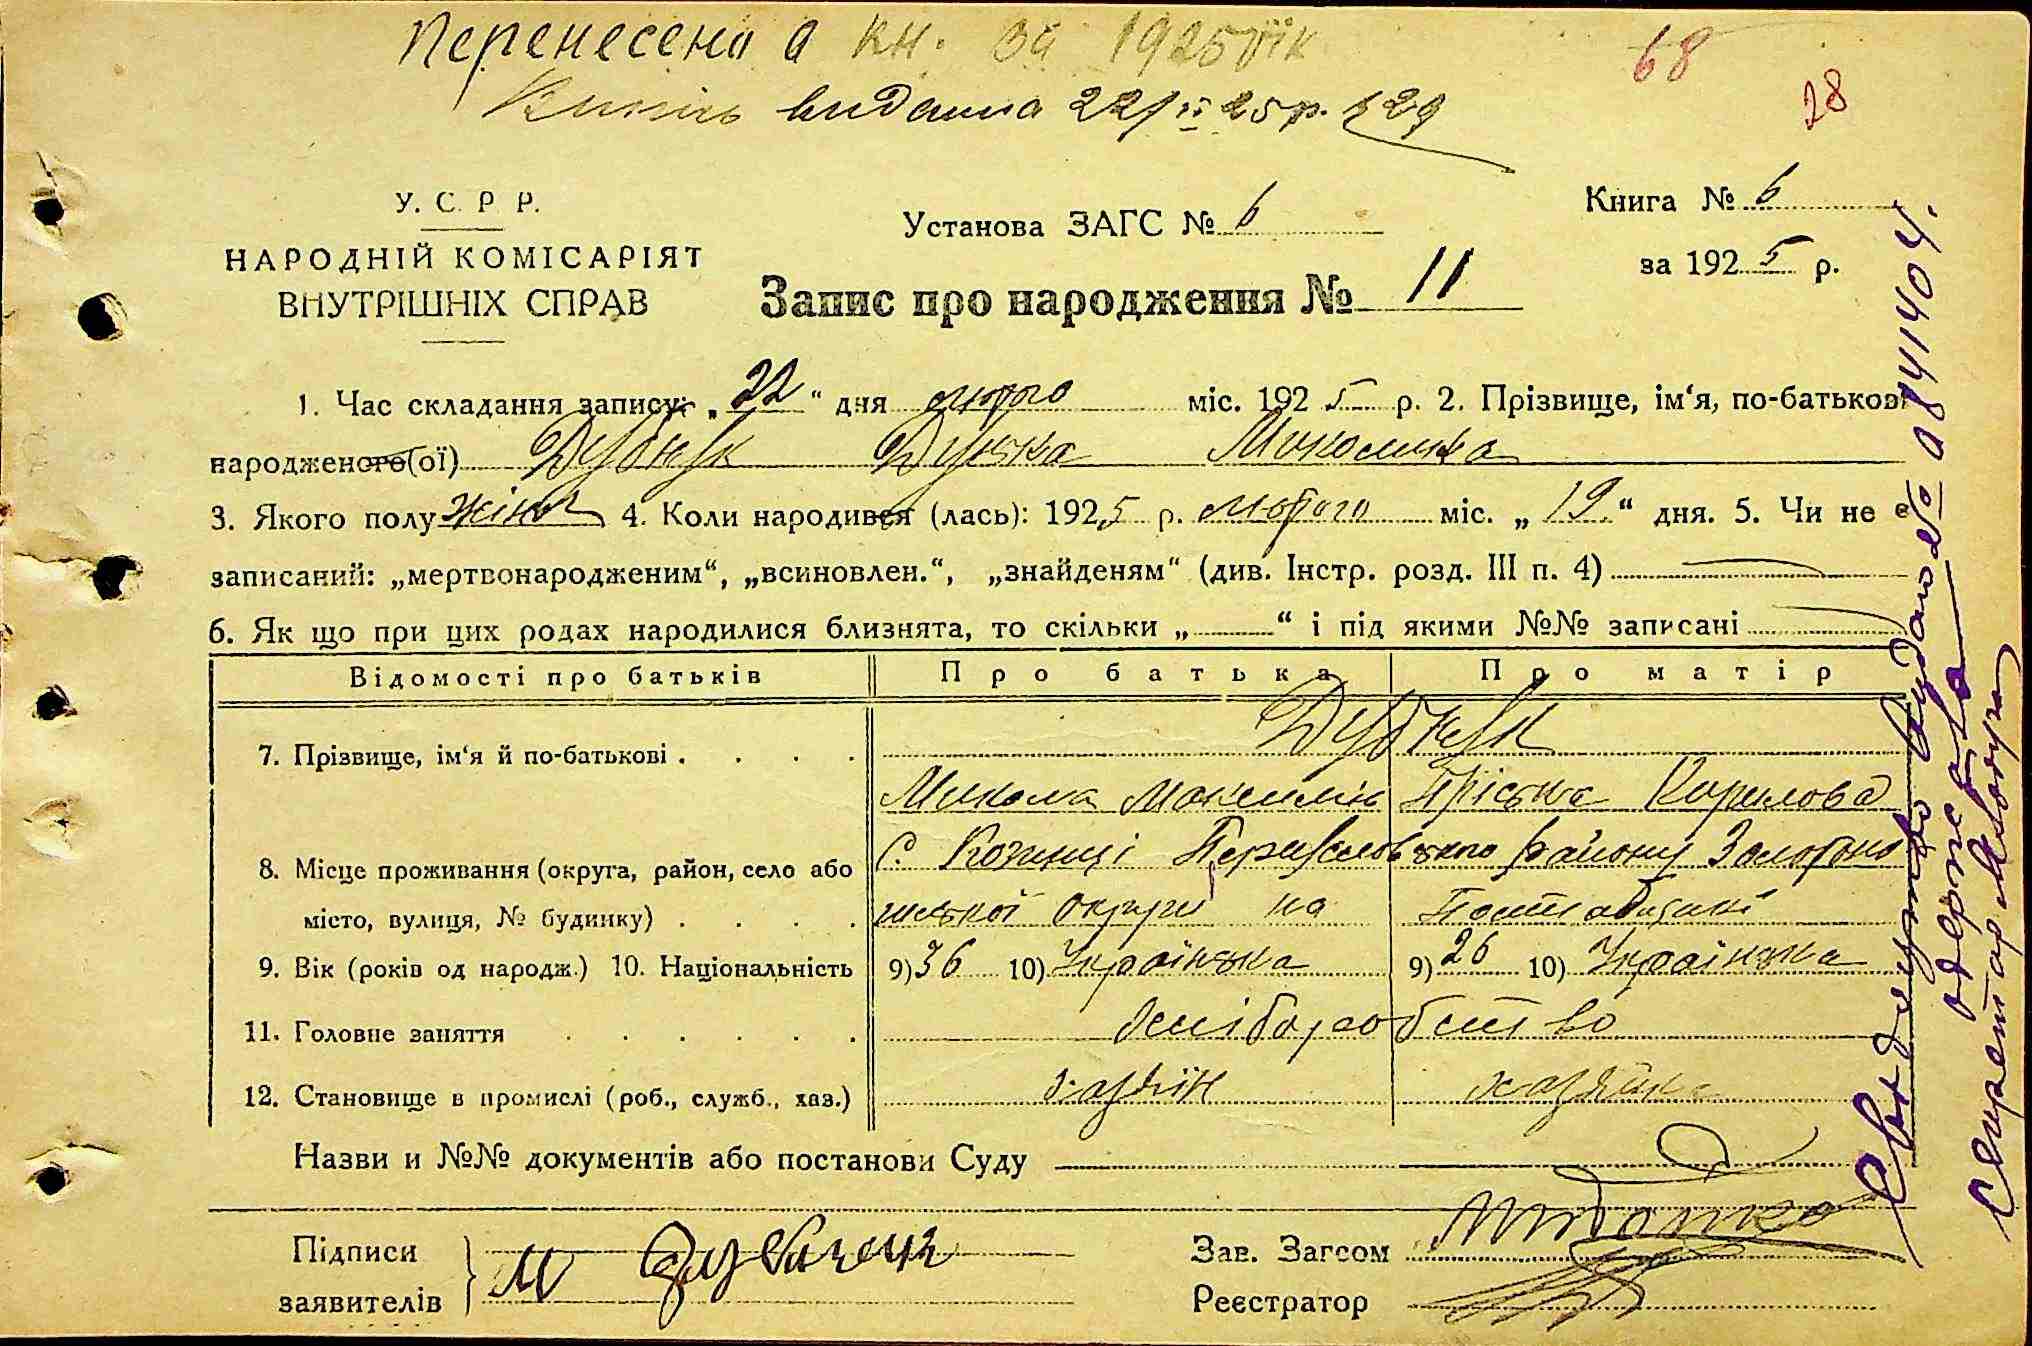 Перенесено в кн. за 1925 рік
Витяг видана 22/II 25 р. № 29
68
28
У. С. Р. Р.
НАРОДНІЙ КОМІСАРІЯТ
ВНУТРІШНІХ СПРАВ
Установа ЗАГС № 6
Книга № 6
за 1925 р.
Запис про народження № 11
1. Час складання запису: „22“ дня лютого міс. 1925 р. 2. Прізвище, ім‘я, по-батькові
народженого(ої) Дубчак Дунька Миколина
3. Якого полу жіноч 4. Коли народився (лась): 1925 р. лютого міс. „19“ дня. 5. Чи не є
записаний: „мертвонародженим“, „всиновлен.“, „знайденям“ (див. Інстр. розд. III п. 4)
6. Як що при цих родах народилися близнята, то скільки „ “ і під якими №№ записані
Відомості про батьків Про батька Про матір
7. Прізвище, ім‘я й по-батькові Дубчак
Микола Максимів Пріська Кирилова
8. Місце проживання (округа, район, село або С. Козинці Переяславського району Золотоно
місто, вулиця, № будинку) шської округи на
9. Вік (років од народж.) 10. Національність 9) 36 10) Українська 9) 26 10) Українська
11. Головне заняття хліборобство
12. Становище в промислі (роб., служб., хаз.) хазяїн хазяйка
Назви и №№ документів або постанови Суду
Підписи
заявителів
М
Зав. Загсом
Реєстратор
Свидецтво видано № 0841404.
одержала
Секретар